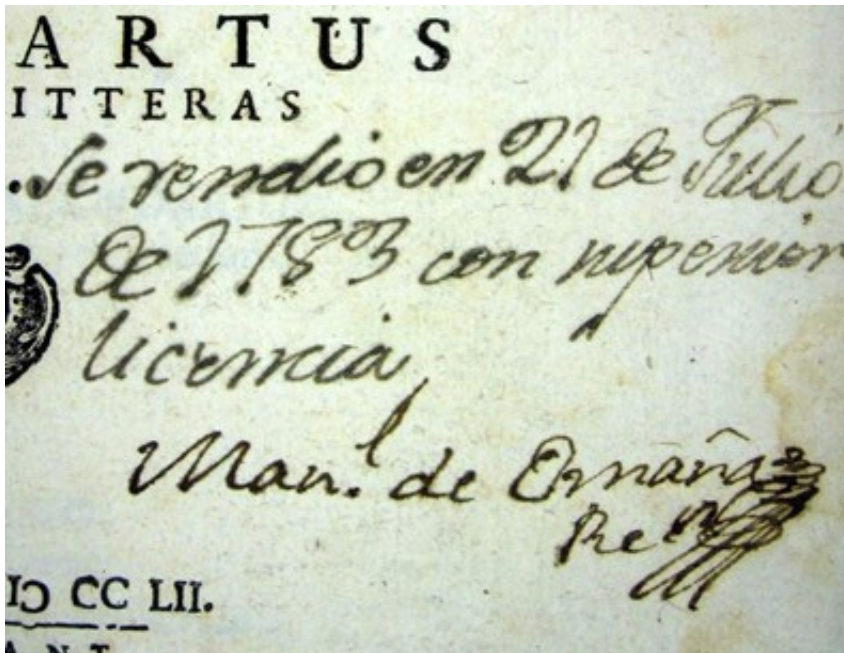 ARTUS
ITTERAS
. Se vendio en 21 de Julio
de 1783 con superior
licencia
Man.l de Omaña
IƆ CC LII.
ANT